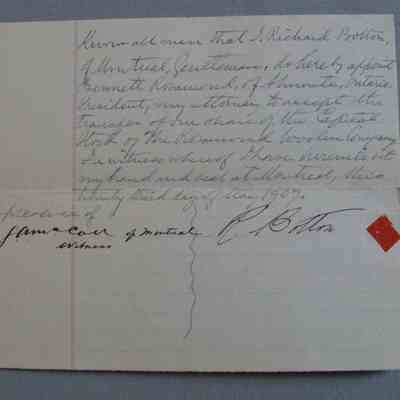 Know all men that I, Richard Bolton,
of Montreal, Gentleman, do hereby appoint
Bennett Rosamond, of Almonte, Ontario
President, my attorney to accept the
transfer of one share of the Capital
Stock of The Rosamond Woolen Company
In witness whereof I have hereunto set
my hand and seal at Montreal, this
twenty third day of May 1907.
presence of
of Montreal R. Bolton
witness